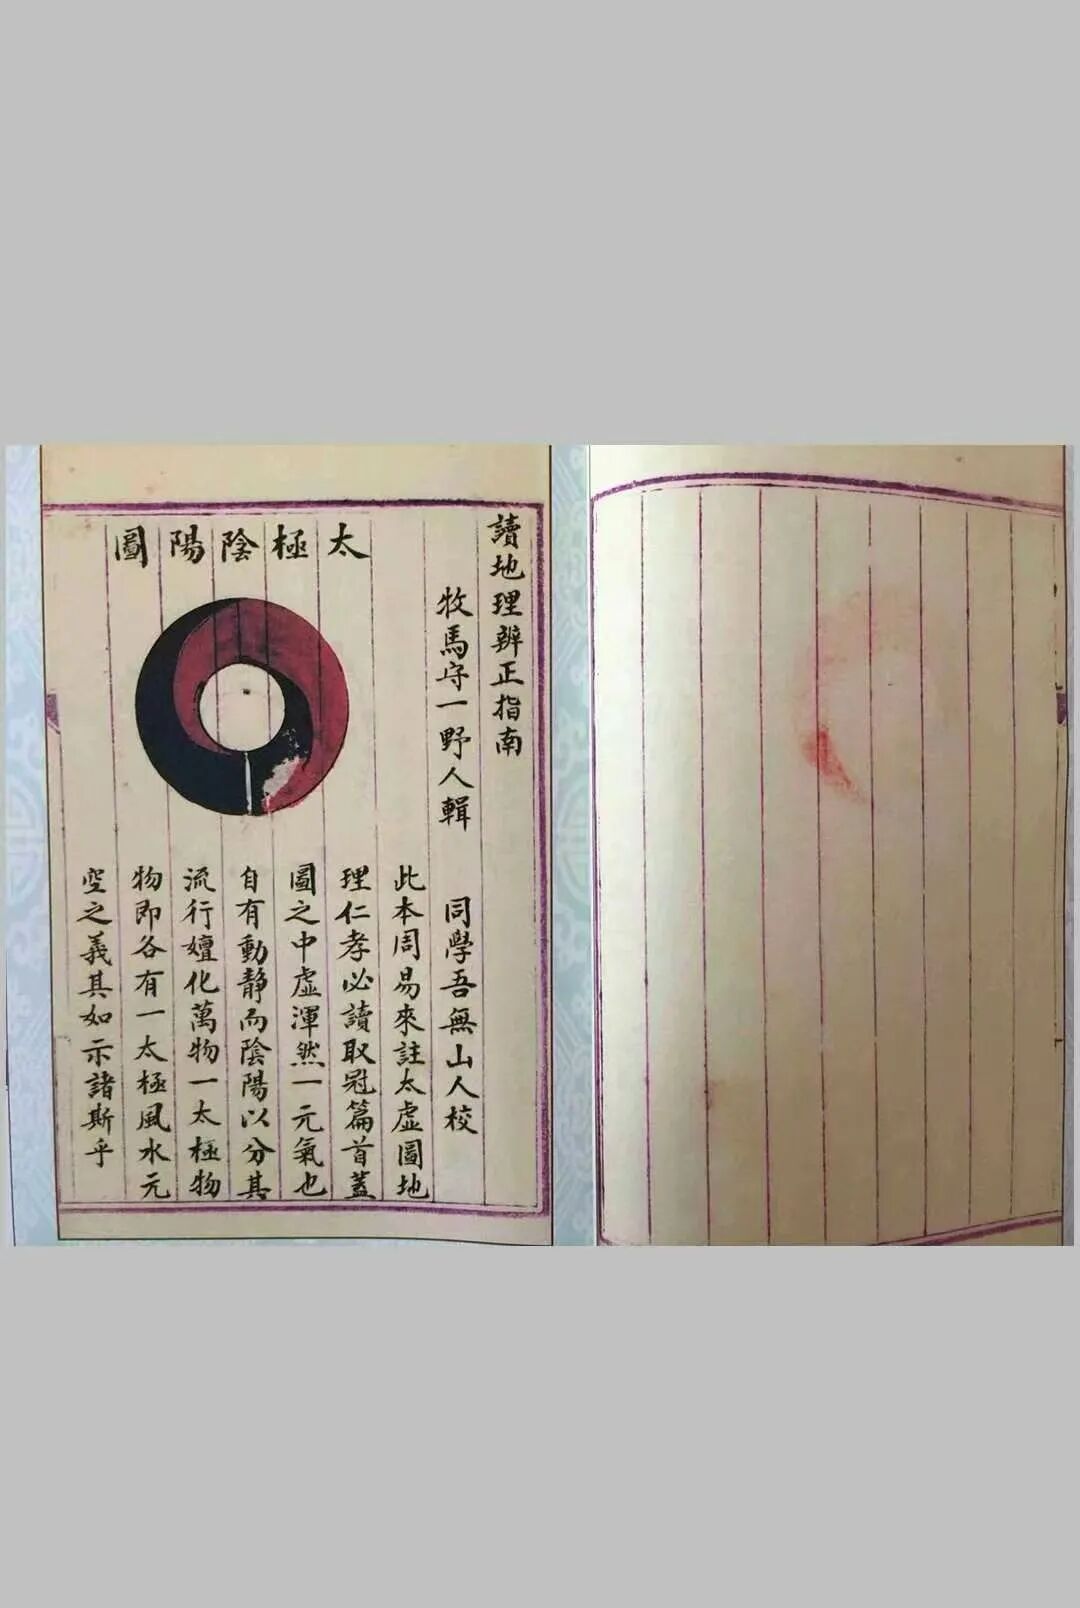 讀地理辨正指南
牧馬守一野人輯
同學吾無山人校
太極陰陽圖
此本周易來註太虛圖地
理仁孝必讀取冠篇首蓋
圖之中虛渾然一元氣也
自有動靜而陰陽以分其
流行嬗化萬物一太極物
物即各有一太極風水元
空之義其如示諸斯乎